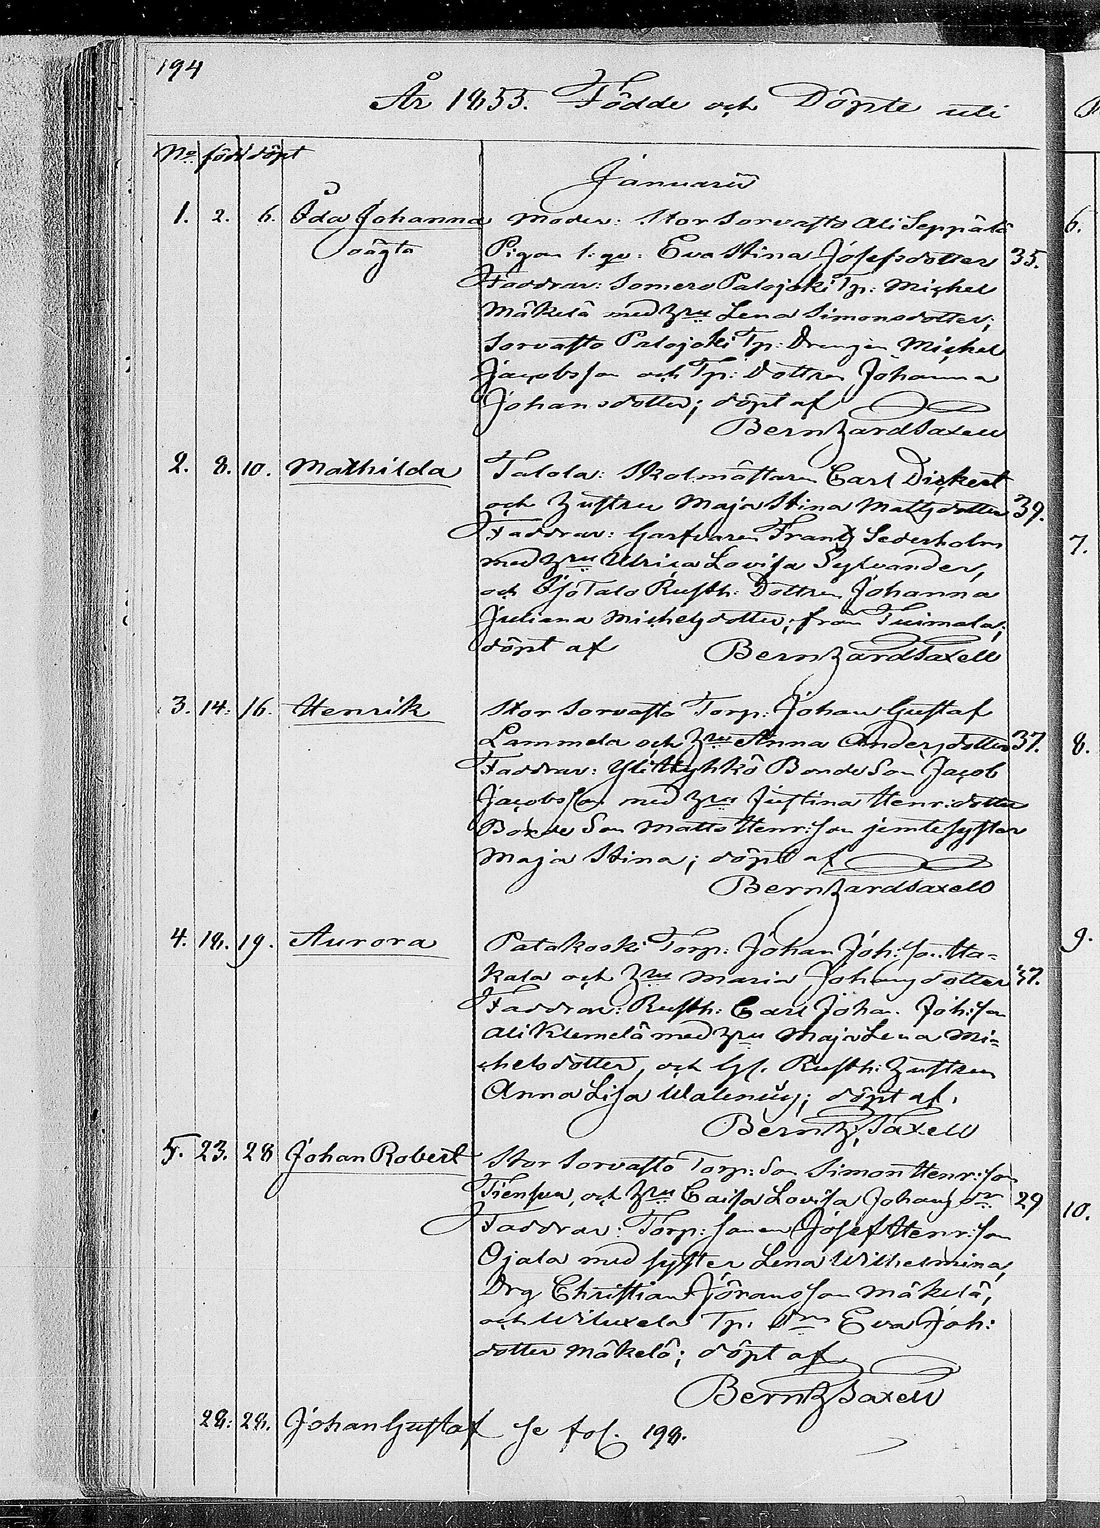 194
År 1855. Födde och Döpte uti
No född döpt
Januarii
1. 2. 6. Ida Johanna Moder: Stor Sorvasto Ali Seppälä
oägta Pigan l: qv: Eva Stina Josefsdotter 35.
Faddrar: Somero Palojoki Tp: Michel
Mäkelä med Hru Lena Simonsdotter;
Sorvasto Palojoki Tp: Drengen Michel
Jacobsson och Tp: Dottren Johanna
Johansdotter; döpt af
Berntzard Saxell
2. 8. 10. Mathilda Talola: Skolmästaren Carl Dickert
och Hustru Maja Stina Mattsdotter 39.
Faddrar: Garfvaren Frantz Sederholm
med Hru Ulrica Lovisa Sylvander,
och Isotalo Rusth: Dottren Johanna
Juliana Michelsdotter, från Tuimala;
döpt af Berntzard Saxell
3. 14. 16. Henrik Stor Sorvasto Torp: Johan Gustaf
Lammela och Hru Anna Andersdotter 37.
Faddrar: Yli Hyhkö Bonde Son Jacob
Jacobsson med Hru Justina Henr:dotter
Bonde Son Matts Henr:son jemte syster
Maja Stina; döpt af
Berntzard Saxell
4. 18. 19. Aurora Patakoski Torp: Johan Joh:son Ha-
kala och Hru Maria Johansdotter 37.
Faddrar: Rusth: Carl Johan Joh:son
Ali Klemelä med Hru Maja Lena Mi-
chelsdotter, och Gl. Rusth: Hustrun
Anna Lisa Walenius; döpt af.
Berntz. Saxell
5. 23. 28 Johan Robert Stor Sorvasto Torp: Son Simon Henr:son
Tiensuu, och Hru Caisa Lovisa Johans dr 29
Faddrar: Torp: sonen Josef Henr:son
Ojala med syster Lena Wilhelmina,
Drg Christian Göransson Mäkelä,
och Wiluxela Tp: drn Eva Joh:
dotter Mäkelä; döpt af
Berntz Saxell
28. 28. Johan Gustaf se fol. 198.
6.
7.
8.
9.
10.